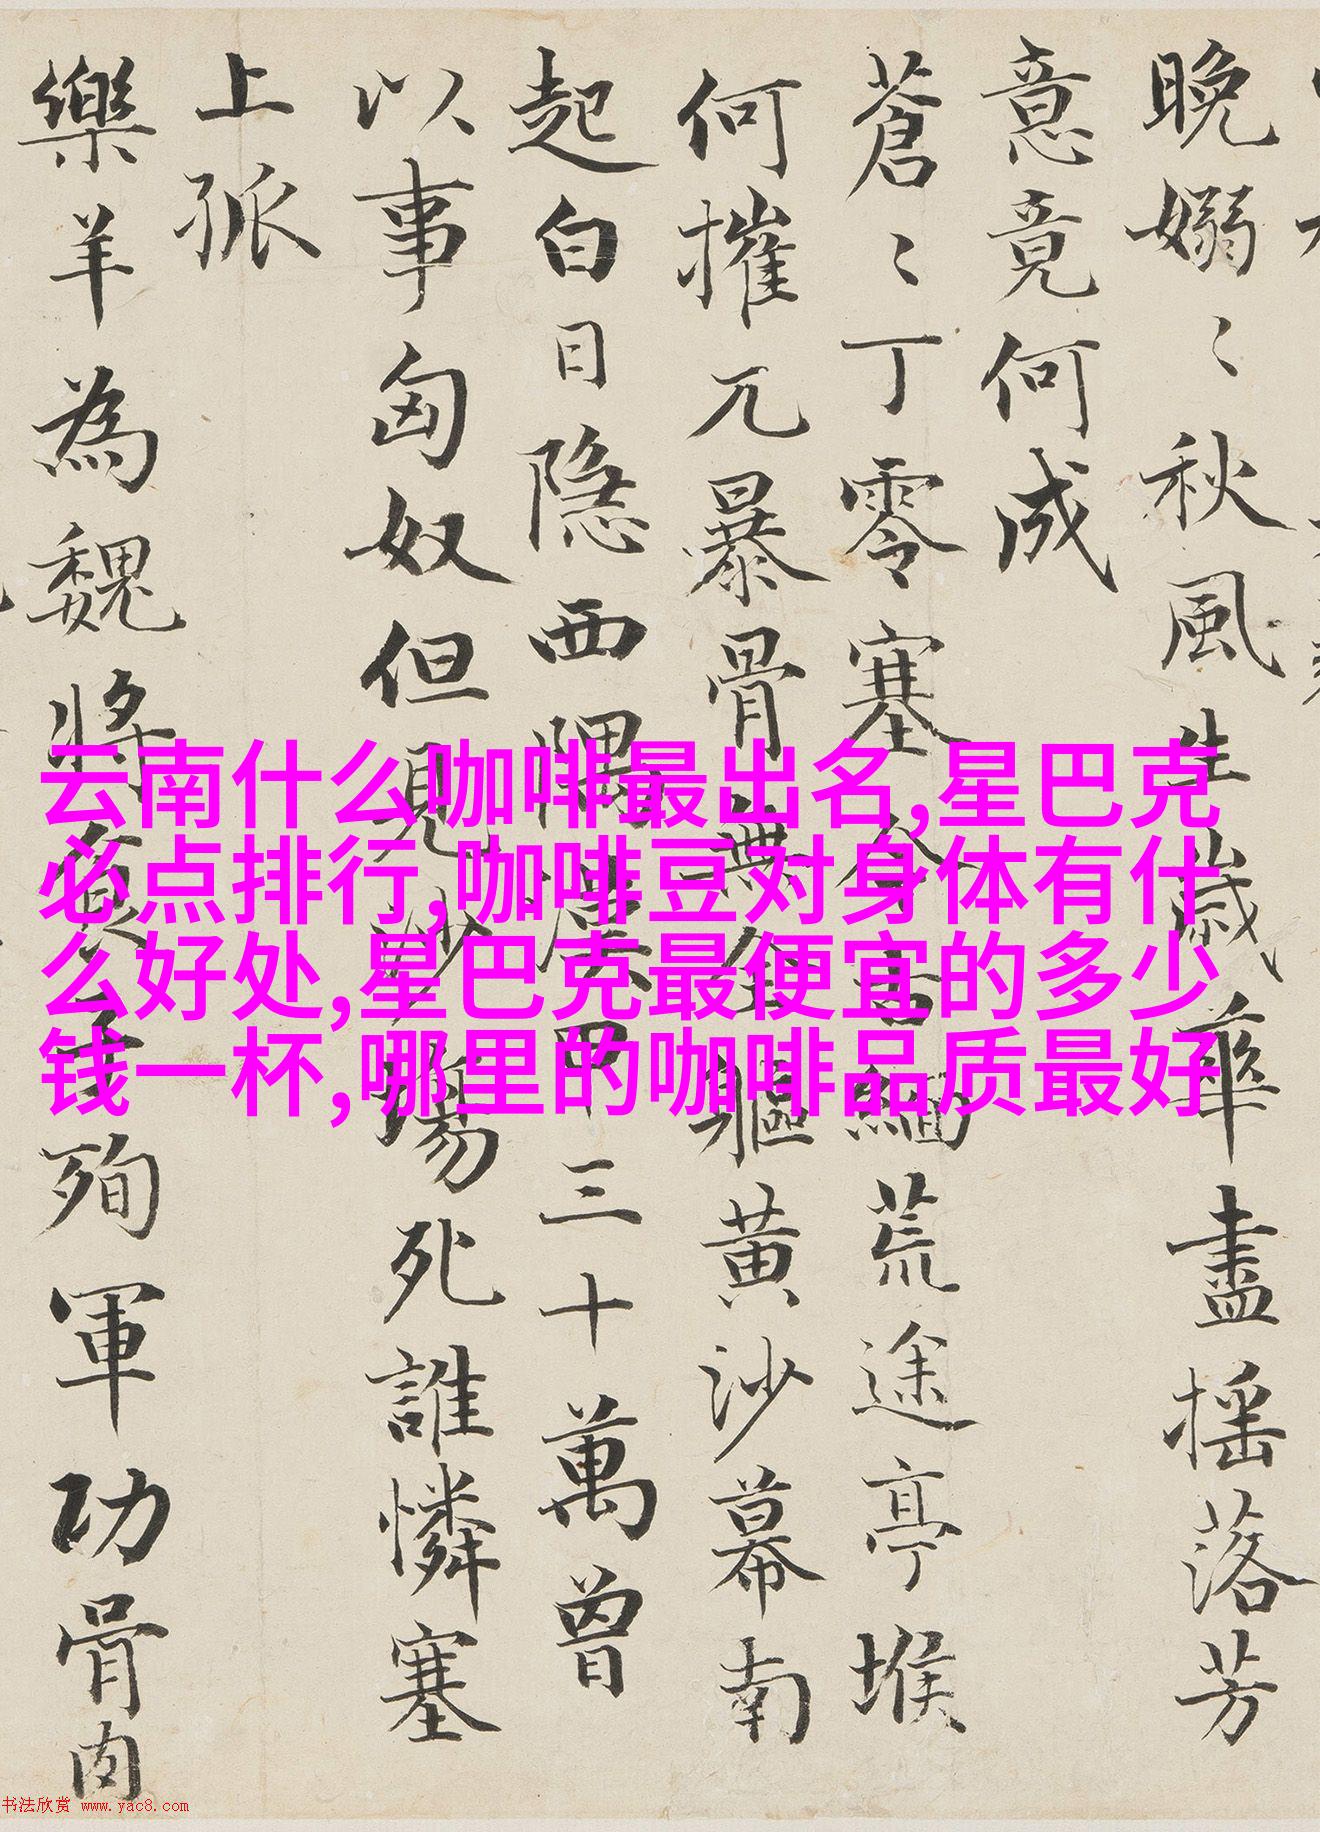 晚嫋〻秋風生歲華盡摇落芳
意竟何成
蒼〻丁零塞今古緬荒途亭堠
何摧兀暴骨無全軀黃沙幕南
起白日隐西隅漢甲三十萬曾
以事匈奴但見沙場死誰憐塞
上孤
樂羊為魏將食子殉軍功骨肉
云南什么咖啡最出名,星巴克
必点排行,咖啡豆对身体有什
么好处,星巴克最便宜的多少
钱一杯,哪里的咖啡品质最好
书法欣赏 www.yac8.com